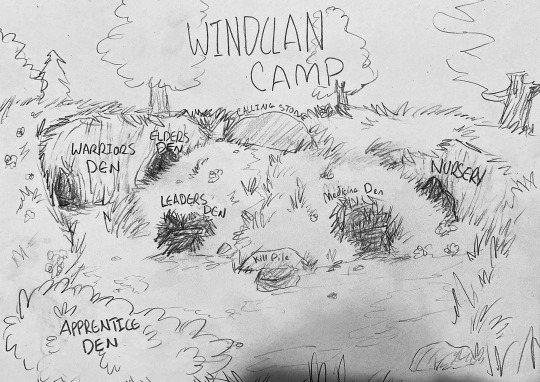 WINDCLAN
CAMP
CALLING STONE
ELDERS
DEN
WARRIORS
DEN
NURSERY
LEADERS
DEN
Medicine Den
Kill Pile
APPRENTICE
DEN